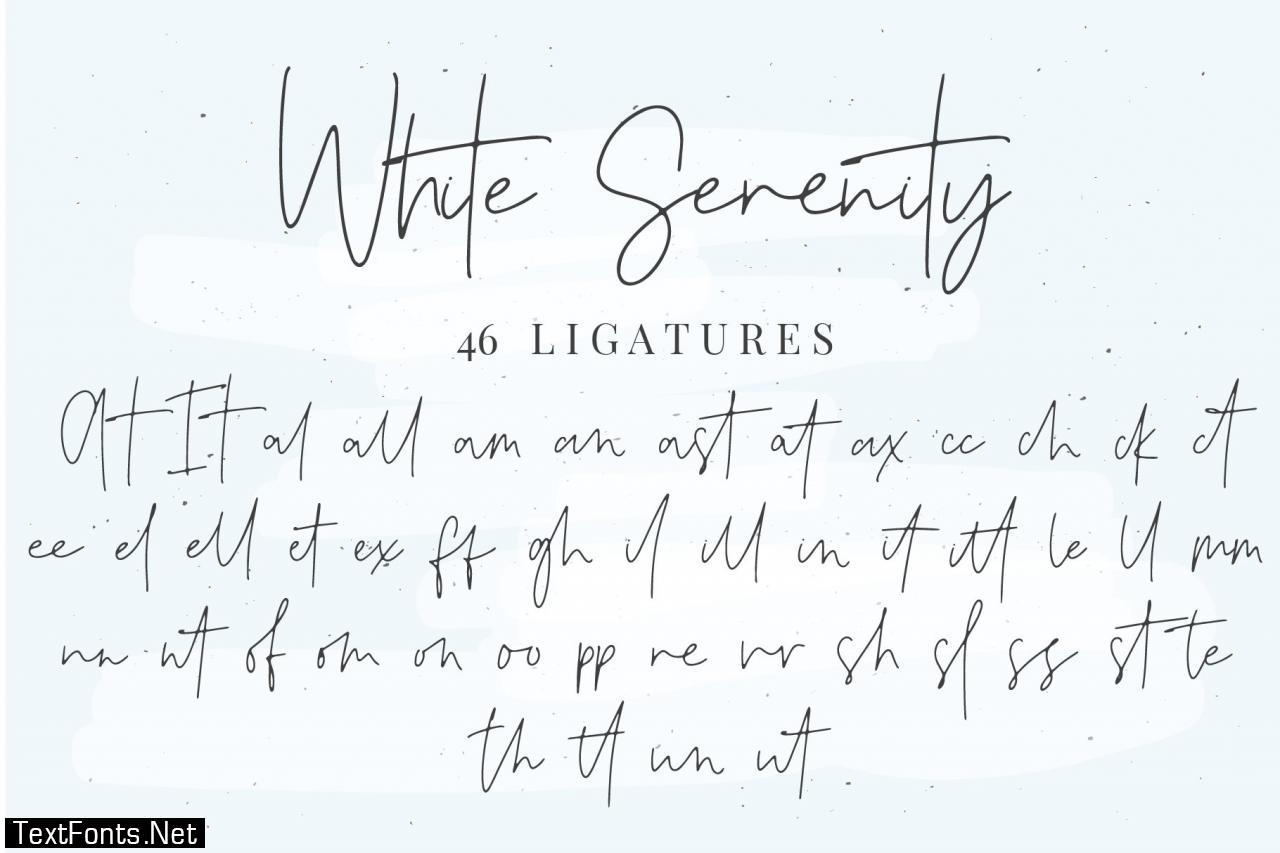 White Serenity
46 LIGATURES
At It al all am an ast at ax cc ch ck ct
ee el ell et ex ff gh il ill in it itt le ll mm
nn nt of om on oo pp re rr sh sl ss st te
th tt un ut
TextFonts.Net